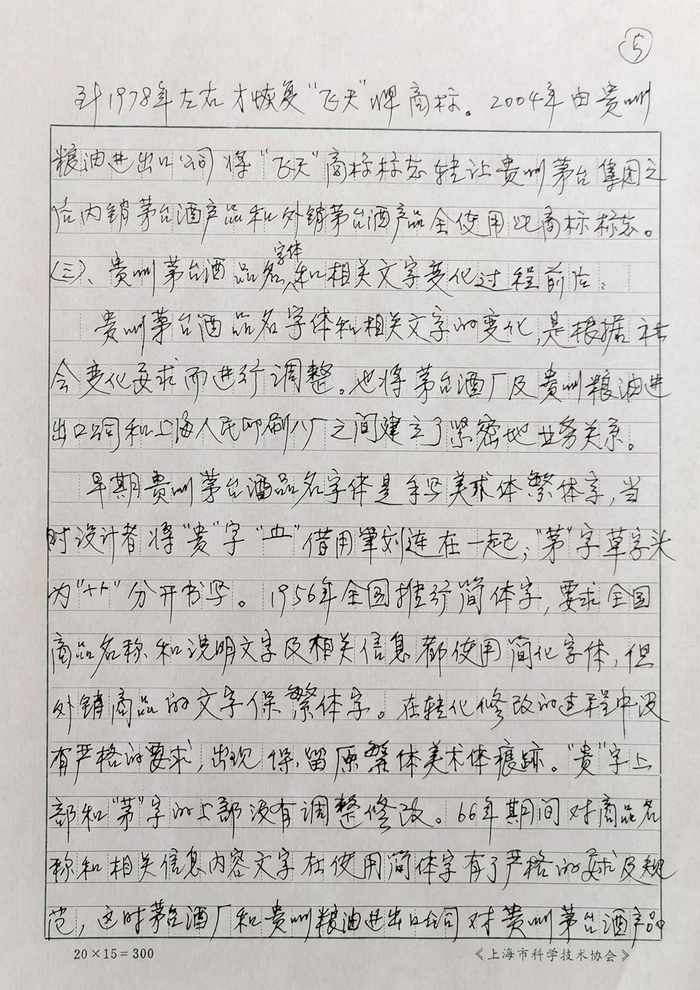 ⑤
到1978年左右才恢复“飞天”牌商标。2004年由贵州
粮油进出口公司将“飞天”商标标志转让贵州茅台集团之
后内销茅台酒产品和外销茅台酒产品全使用此商标标志。
字体
(三)、贵州茅台酒品名,和相关文字变化过程前后:
贵州茅台酒品名字体和相关文字的变化,是根据社
会变化要求而进行调整。也将茅台酒厂及贵州粮油进
出口公司和上海人民印刷八厂之间建立了紧密地业务关系。
早期贵州茅台酒品名字体是手写美术体繁体字,当
时设计者将“贵”字“𠀐”借用筆划连在一起,“茅”字草字头
为“++”分开书写。1956年全国推行简体字,要求全国
商品名称和说明文字及相关信息都使用简化字体,但
外销商品的文字保繁体字。在转化修改的过程中没
有严格的要求,出现保留原繁体美术体痕跡。“贵”字上
部和“茅”字的上部没有调整修改。66年期间对商品名
称和相关信息内容文字在使用简体字有了严格的要求及规
范,这时茅台酒厂和贵州粮油进出口公司对贵州茅台酒产品
20×15=300
《上海市科学技术协会》